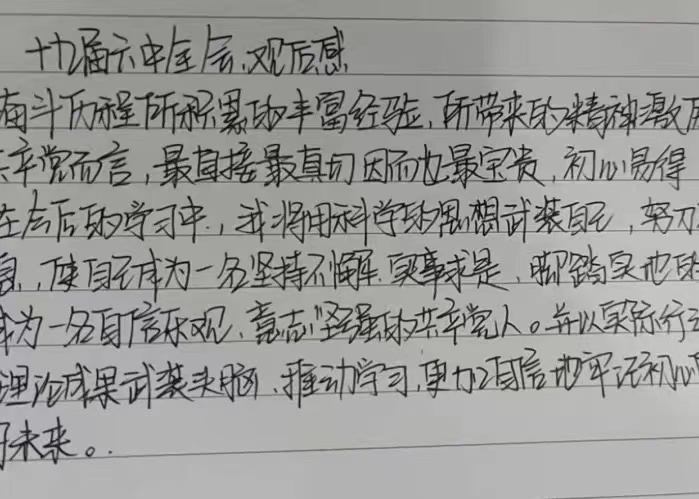 十九届六中全会.观后感
奋斗历程所积累的丰富经验,所带来的精神激励
共产党而言,最直接最真切因而也最宝贵,初心易得
在会后的学习中,我将用科学的思想武装自己,努力
使自己成为一名坚持不懈.实事求是.脚踏实地的
成为一名自信乐观、意志坚强的共产党人。并以实际行动
理论成果武装头脑、推动学习,更加自信地牢记初心
好未来。